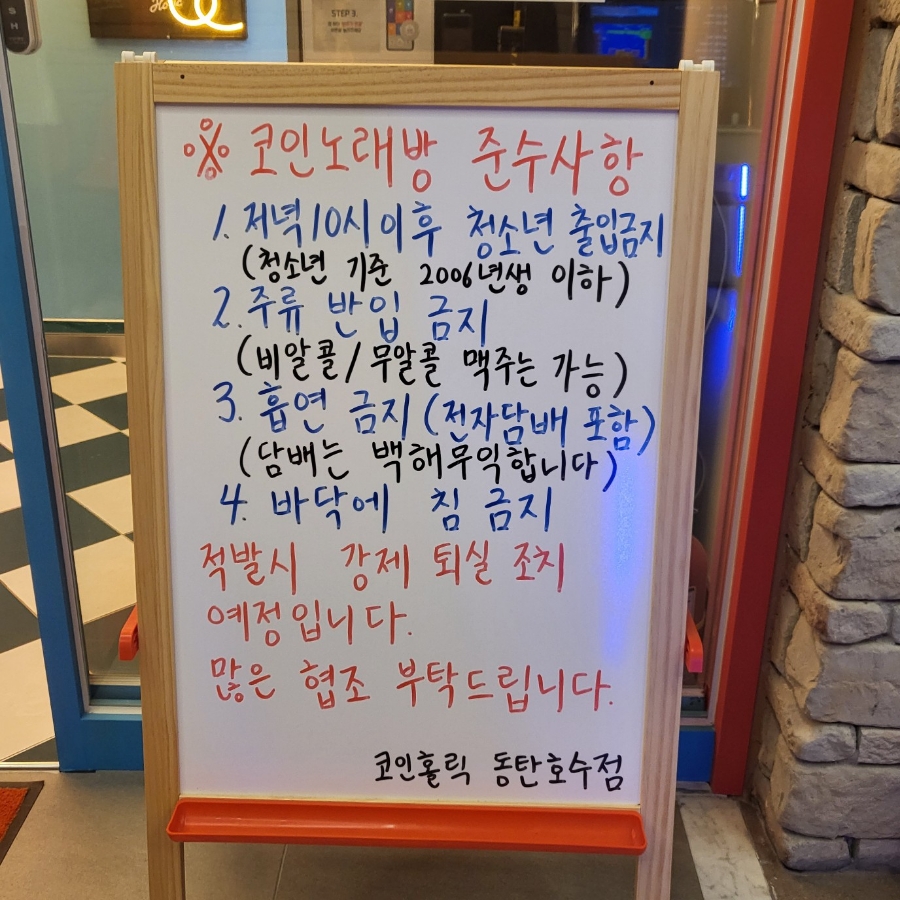 STEP 3.
※ 코인노래방 준수사항
1. 저녁10시이후 청소년 출입금지
(청소년 기준 2006년생 이하)
2. 주류 반입 금지
(비알콜/무알콜 맥주는 가능)
3. 흡연 금지 (전자담배 포함)
(담배는 백해무익합니다)
4. 바닥에 침 금지
적발시 강제 퇴실 조치
예정입니다.
많은 협조 부탁드립니다.
코인홀릭 동탄호수점